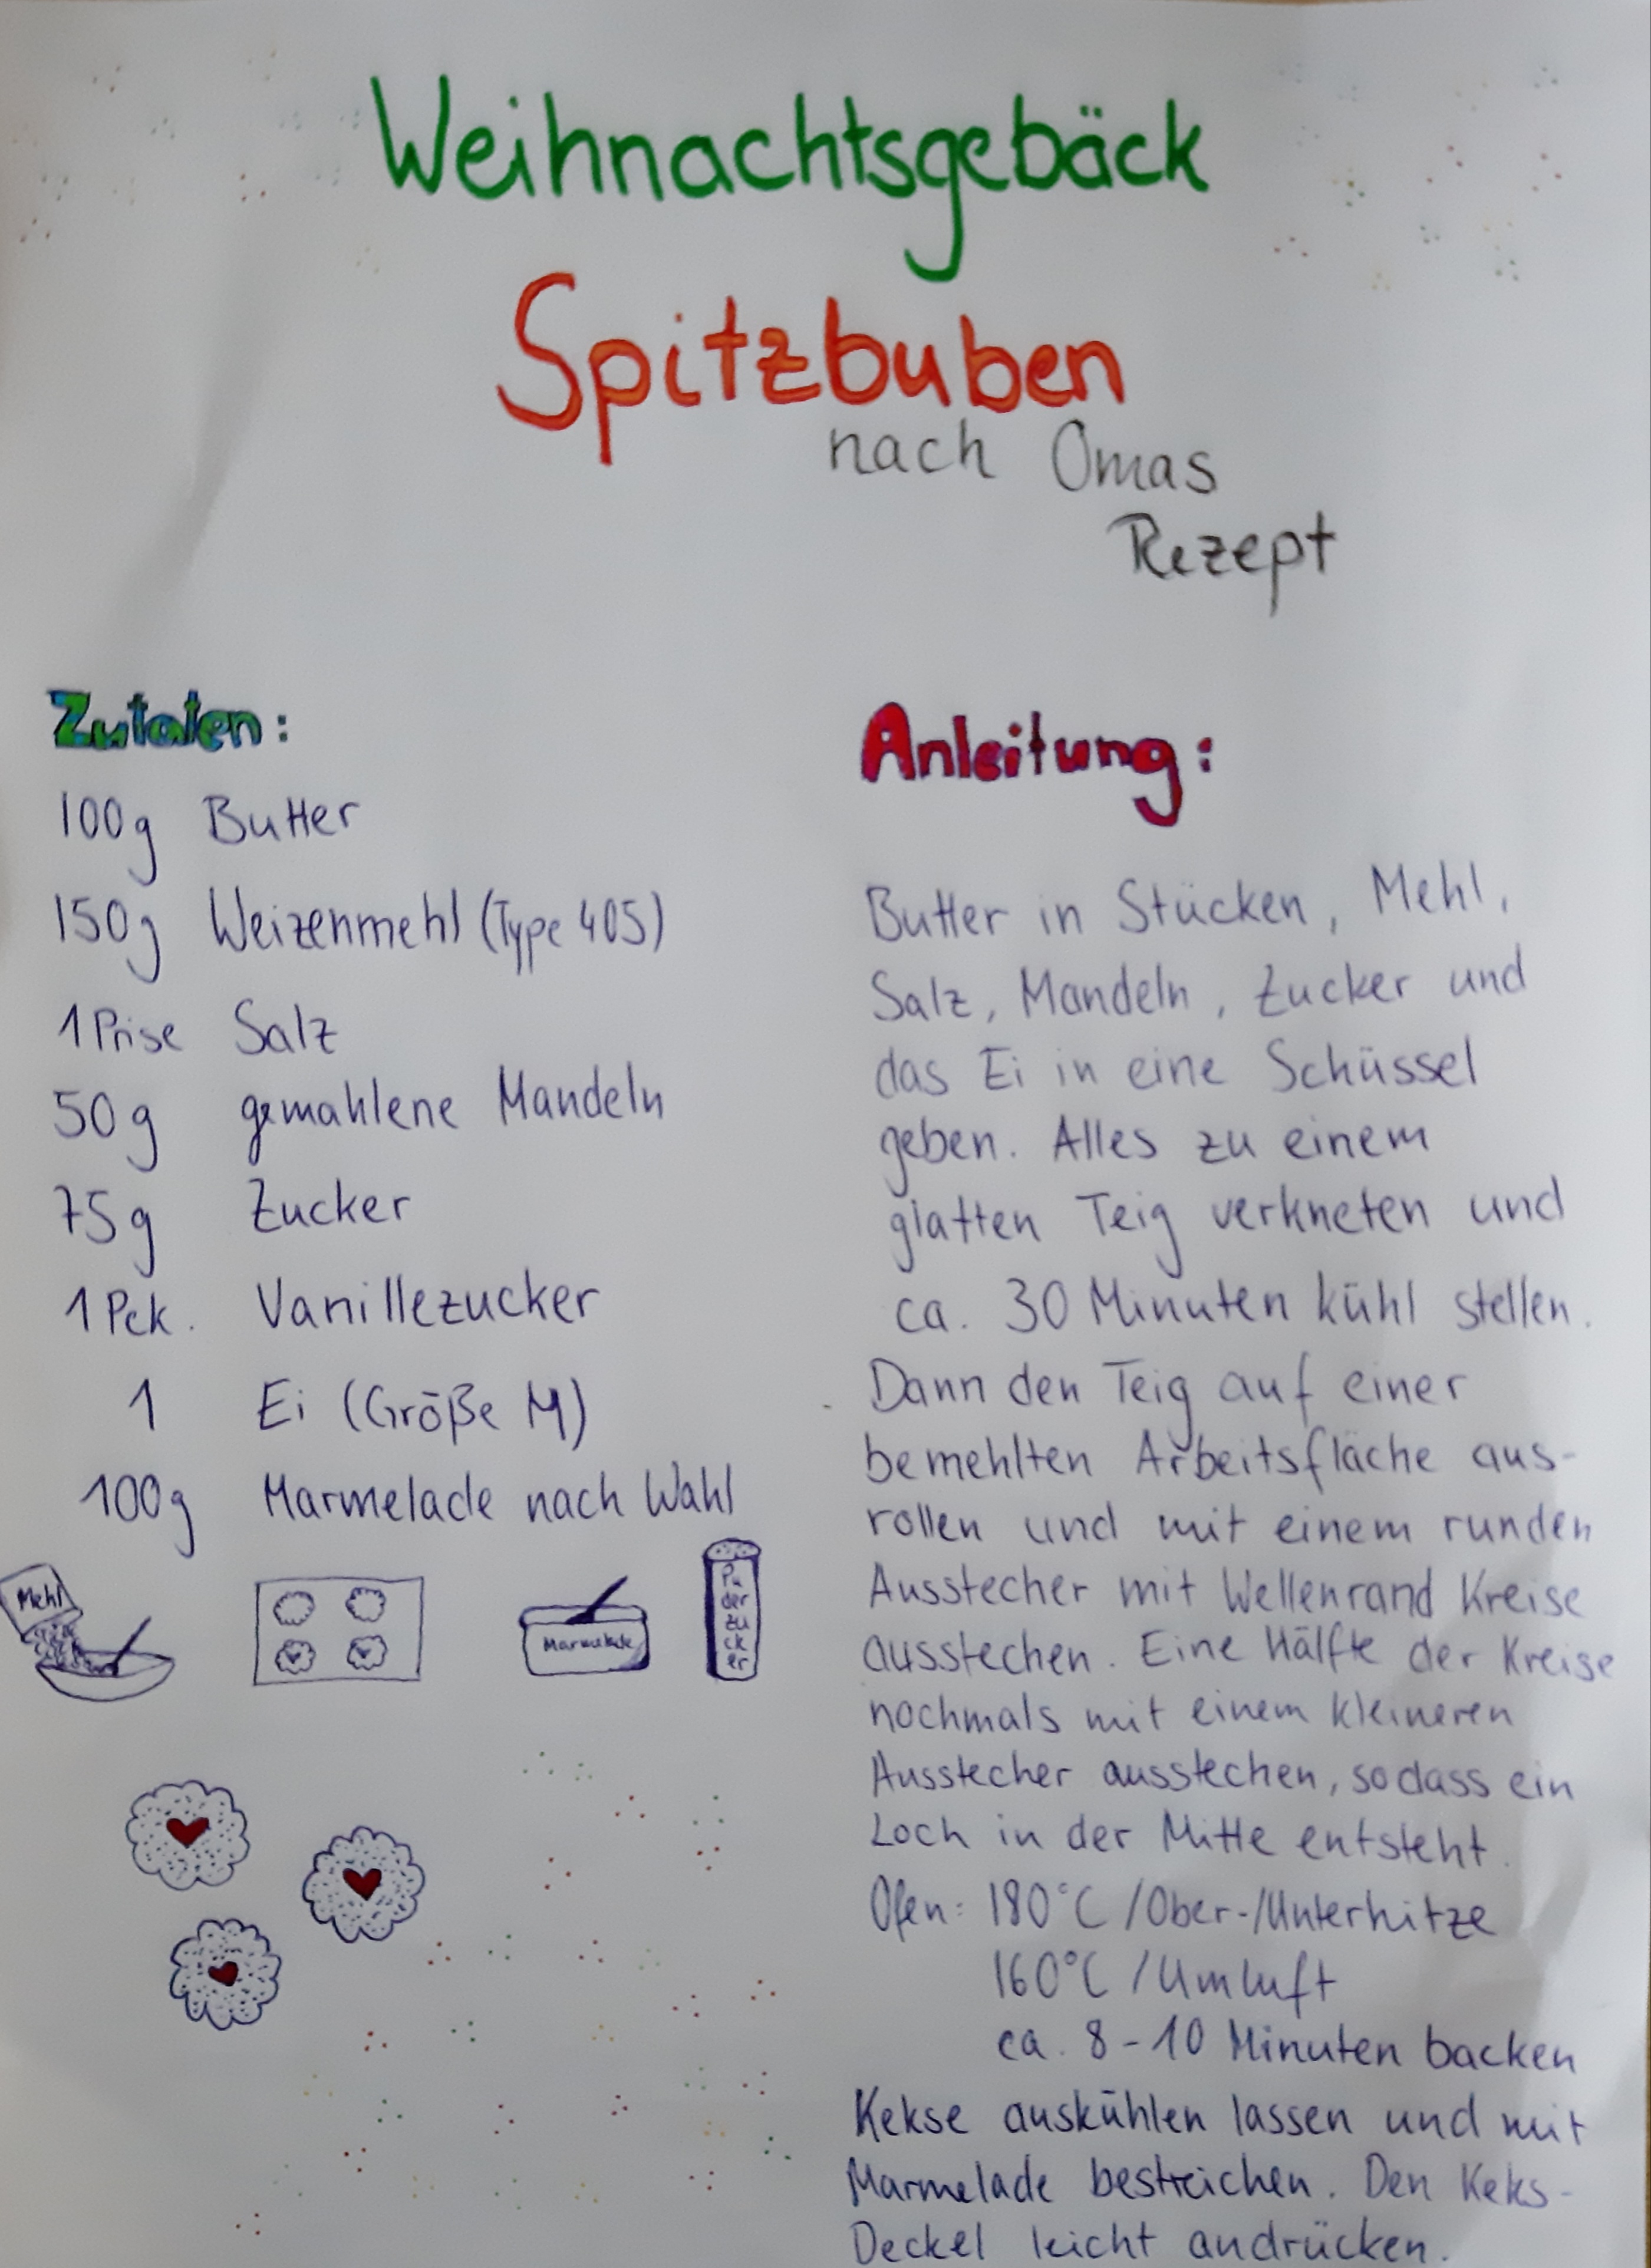 Weihnachtsgebäck
Spitzbuben
nach Omas
Rezept
Zutaten:
100g Butter
150g Weizenmehl (Type 405)
1 Prise Salz
50g gemahlene Mandeln
75g Zucker
1 Pck. Vanillezucker
1 Ei (Größe M)
100g Marmelade nach Wahl
Mehl
Marmelade
Pu
der
zu
ck
er
Anleitung:
Butter in Stücken, Mehl,
Salz, Mandeln, Zucker und
das Ei in eine Schüssel
geben. Alles zu einem
glatten Teig verkneten und
ca. 30 Minuten kühl stellen.
Dann den Teig auf einer
bemehlten Arbeitsfläche aus-
rollen und mit einem runden
Ausstecher mit Wellenrand Kreise
ausstechen. Eine Hälfte der Kreise
nochmals mit einem kleineren
Ausstecher ausstechen, sodass ein
Loch in der Mitte entsteht.
Ofen: 180°C /Ober-/Unterhitze
160°C /Umluft
ca. 8-10 Minuten backen
Kekse auskühlen lassen und mit
Marmelade bestreichen. Den Keks-
Deckel leicht andrücken.